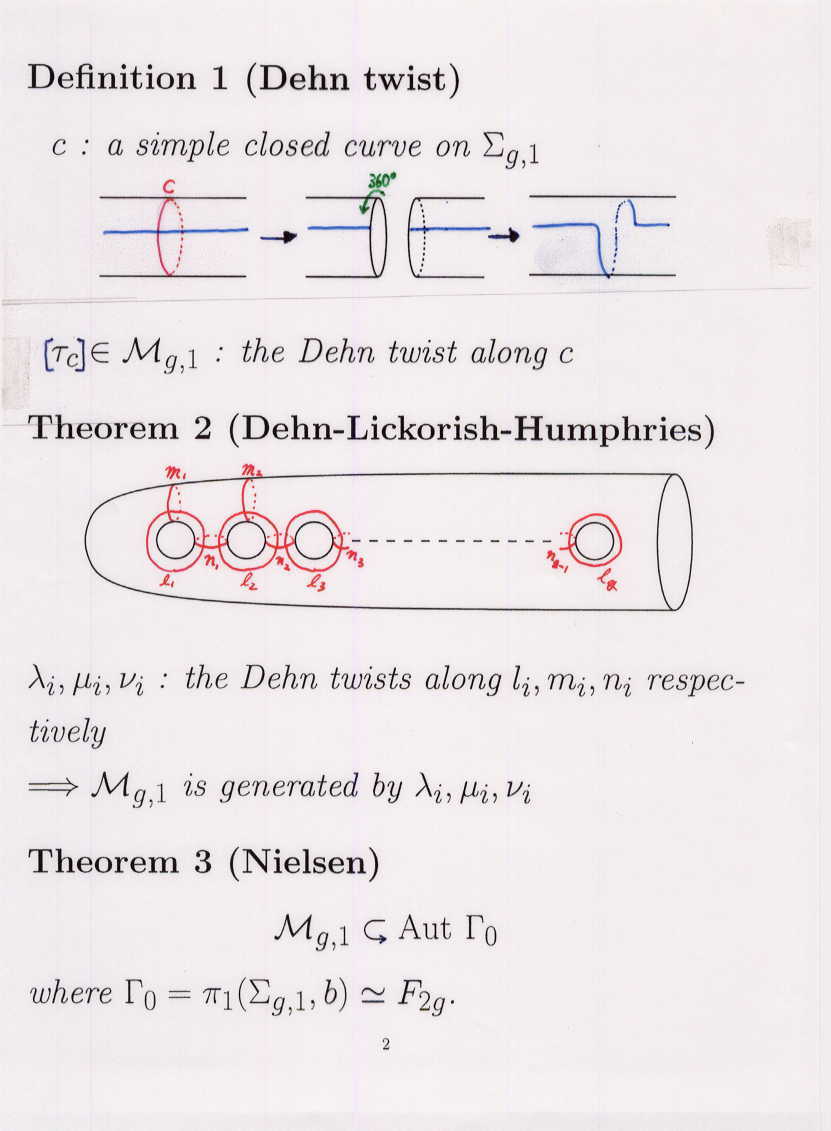 Definition 1 (Dehn twist)
c : a simple closed curve on Σ_{g,1}
C
360°
[τ_c] ∈ ℳ_{g,1} : the Dehn twist along c
Theorem 2 (Dehn-Lickorish-Humphries)
m₁ m₂
n₁ n₂ n₃ n_{g-1}
l₁ l₂ l₃ l_g
λ_i, μ_i, ν_i : the Dehn twists along l_i, m_i, n_i respec-
tively
⟹ ℳ_{g,1} is generated by λ_i, μ_i, ν_i
Theorem 3 (Nielsen)
ℳ_{g,1} ↪ Aut Γ₀
where Γ₀ = π₁(Σ_{g,1}, b) ≃ F_{2g}.
2